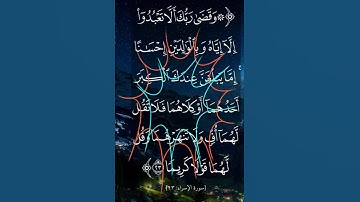 ۞ وَقَضَىٰ رَبُّكَ أَلَّا تَعْبُدُوٓا۟
إِلَّآ إِيَّاهُ وَبِٱلْوَٰلِدَيْنِ إِحْسَٰنًا
إِمَّا يَبْلُغَنَّ عِندَكَ ٱلْكِبَرَ
أَحَدُهُمَآ أَوْ كِلَاهُمَا فَلَا تَقُل
لَّهُمَآ أُفٍّ وَلَا تَنْهَرْهُمَا وَقُل
لَّهُمَا قَوْلًا كَرِيمًا ﴿٢٣﴾
(سورة الإسراء: ٢٣)